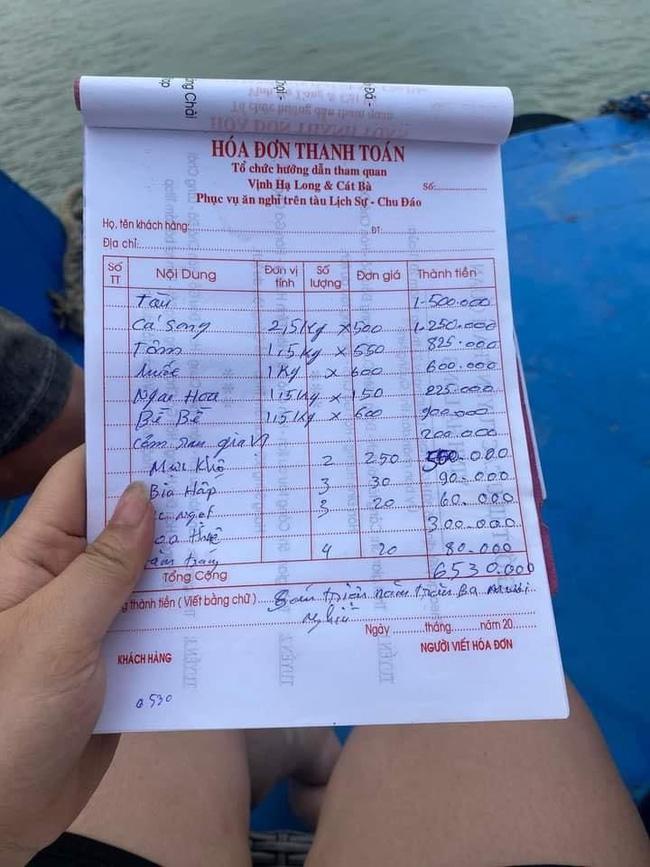 HÓA ĐƠN THANH TOÁN
Tổ chức hướng dẫn tham quan
Vịnh Hạ Long & Cát Bà
Số:
Phục vụ ăn nghỉ trên tàu Lịch Sự - Chu Đáo
Họ, tên khách hàng: ĐT:
Địa chỉ:
Số TT Nội Dung Đơn vị tính Số lượng Đơn giá Thành tiền
Tàu 1.500.000
Cá Song 2,5kg x 500 1.250.000
Tôm 1,5kg x 550 825.000
1kg x 600 600.000
Ngao Hoa 1,5kg x 150 225.000
Bề Bề 1,5kg x 600 900.000
Cơm rau gia vị 200.000
Mực khô 2 250 500.000
Bia Hấp 3 30 90.000
ngọt 3 20 60.000
300.000
4 20 80.000
Tổng Cộng 6530.000
g thành tiền ( Viết bằng chữ ) Sáu triệu năm trăm Ba mươi
nghìn
Ngày tháng năm 20
KHÁCH HÀNG NGƯỜI VIẾT HÓA ĐƠN
6 530